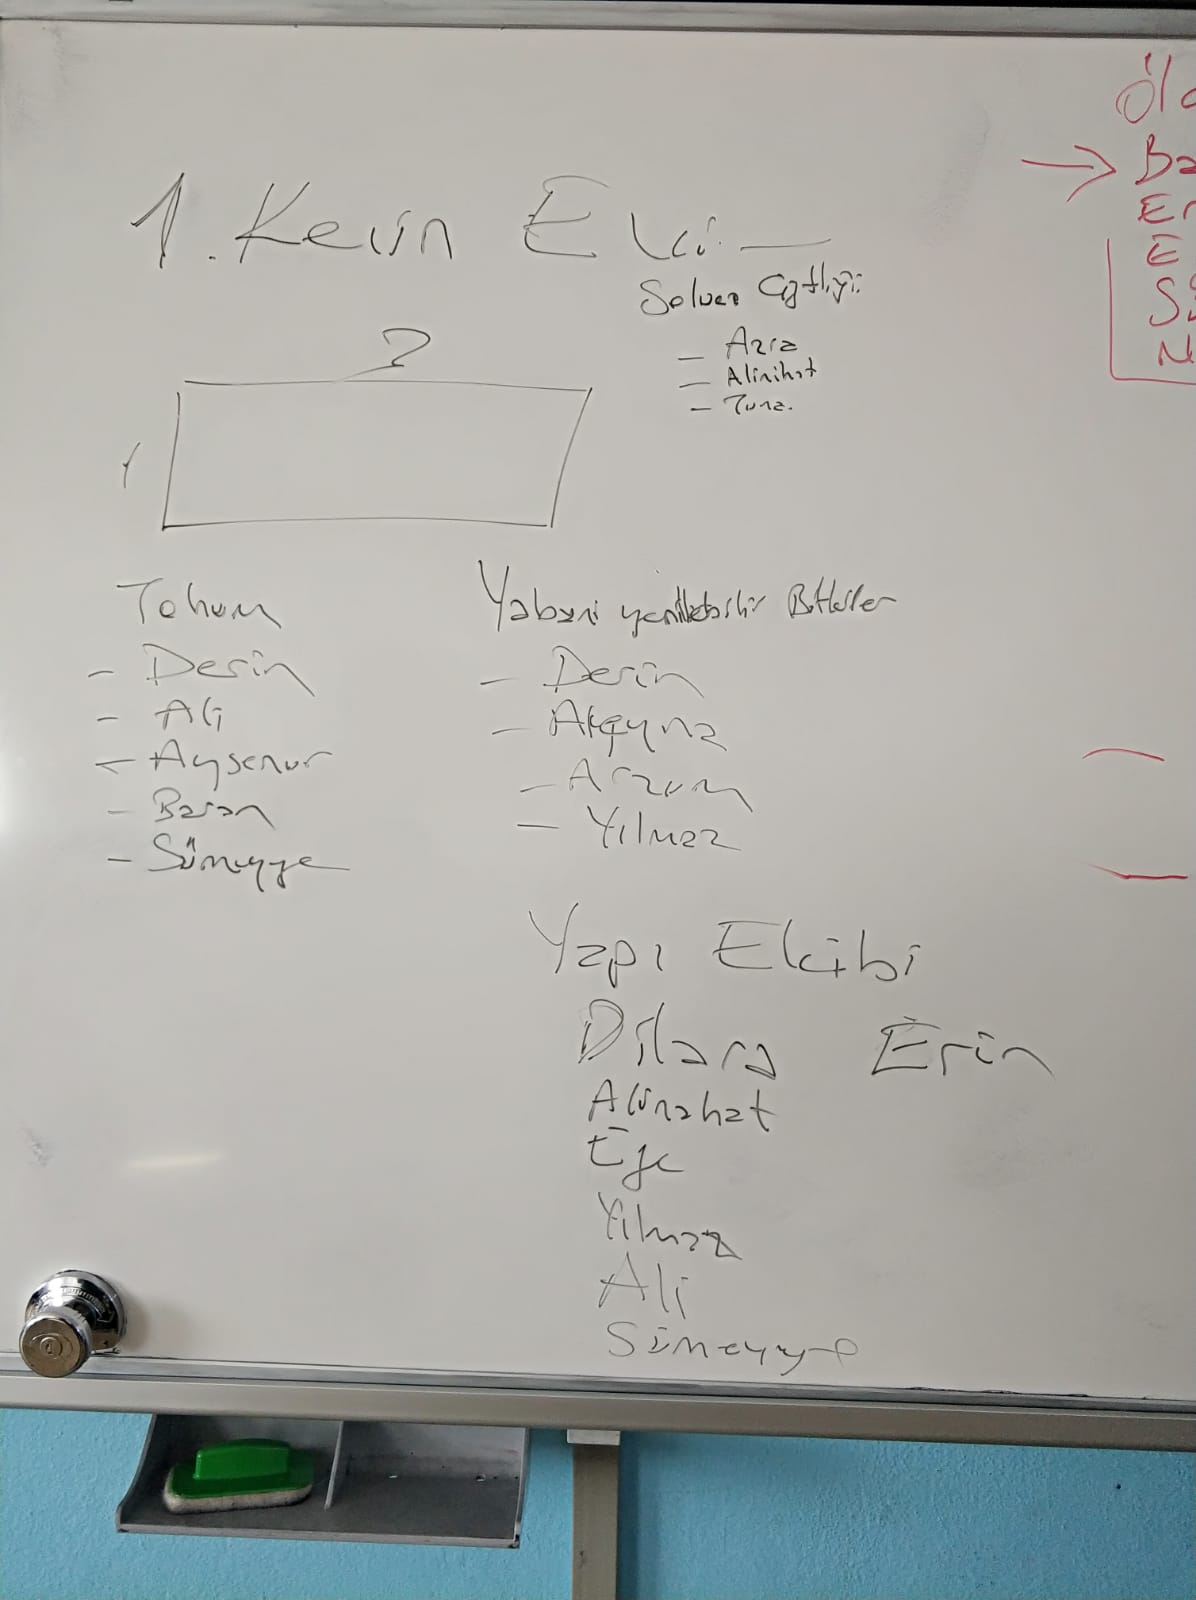 1. Kevin Evi
Solucan Çiftliği:
- Azra
- Alinihat
- Tuna.
2
1
Tohum
- Derin
- Ali
- Ayşenur
- Baran
- Sümeyye
Yabani yenilebilir Bitkiler
- Derin
- Arzum
- Yılmaz
Yapı Ekibi
Dilara Erin
Alinahat
Ege
Yılmaz
Ali
Sümeyye
Öl
Ba
Er
E
Sü
N